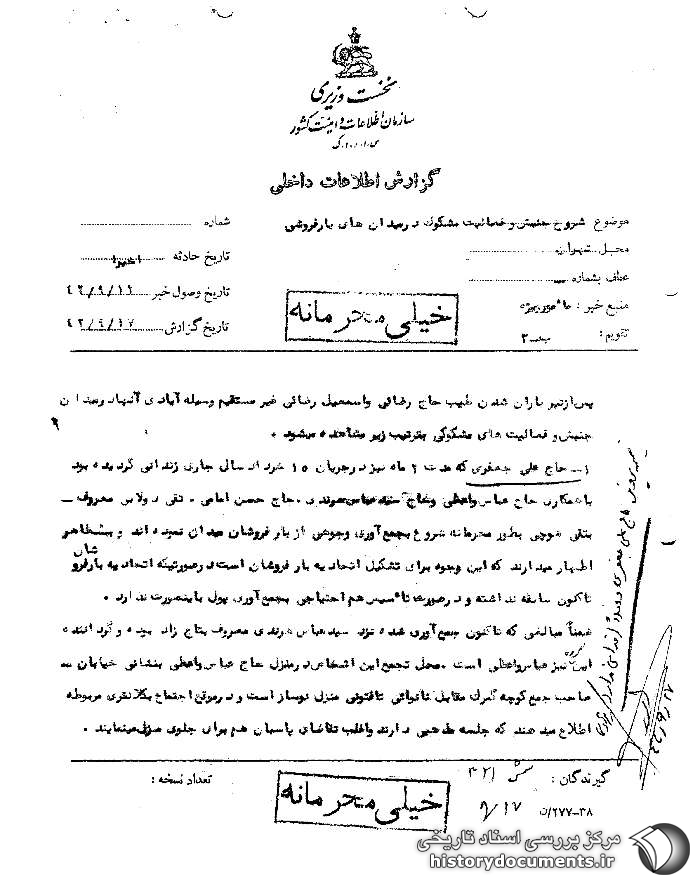 نخست وزیری
سازمان اطلاعات و امنیت کشور
س.ا.و.ا.ک
گزارش اطلاعات داخلی
موضوع شروع جنبش و فعالیت مشکوک در میدان های بارفروشی
شماره
محل تهران
تاریخ حادثه اخیرا
عطف بشماره
تاریخ وصول خبر ۴۲/۹/۱۲
منبع خبر : مأمور ویژه
خیلی محرمانه
تاریخ گزارش ۴۲/۹/۱۷
تقویم : ب-۲
پس از تیر باران شدن طیب حاج رضائی و اسمعیل رضائی غیر مستقیم وسیله آبادی آنها در میدان
جنبش و فعالیت های مشکوکی بترتیب زیر مشاهده میشود .
۱- حاج علی جعفری که مدت ۲ ماه نیز در جریان ۱۵ خرداد سال جاری زندانی گردیده بود
با همکاری حاج عباس واعظی و حاج سید عباس مرندی . حاج حسن امامی . تقی دولابی معروف
بتقی شوچی بطور محرمانه شروع بجمع آوری وجوهی از بار فروشان میدان نموده اند و بتظاهر
اظهار میدارند که این وجوه برای تشکیل اتحادیه بار فروشان است در صورتیکه اتحادیه بارفروشان
تاکنون سابقه نداشته و در صورت تأسیس هم احتیاجی بجمع آوری پول باینصورت ندارد .
ضمناً مبالغی که تاکنون جمع آوری شده نزد سید عباس مرندی معروف بتاج زاد بوده و گرداننده
این گروه نیز عباس واعظی است . محل تجمع این اشخاص در منزل حاج عباس واعظی بنشانی خیابان
صاحب جمع کوچه گمرک مقابل نانوائی تافتونی منزل نوساز است و در موقع اجتماع بکلانتری مربوطه
اطلاع میدهند که جلسه مذهبی دارند و اغلب تقاضای پاسبان هم برای جلوی منزل مینمایند .
گیرندگان : ۳۲۱
تعداد نسخه :
خیلی محرمانه
۹/۱۷
۳۸-۲۷۷/ن
مرکز بررسی اسناد تاریخی
historydocuments.ir